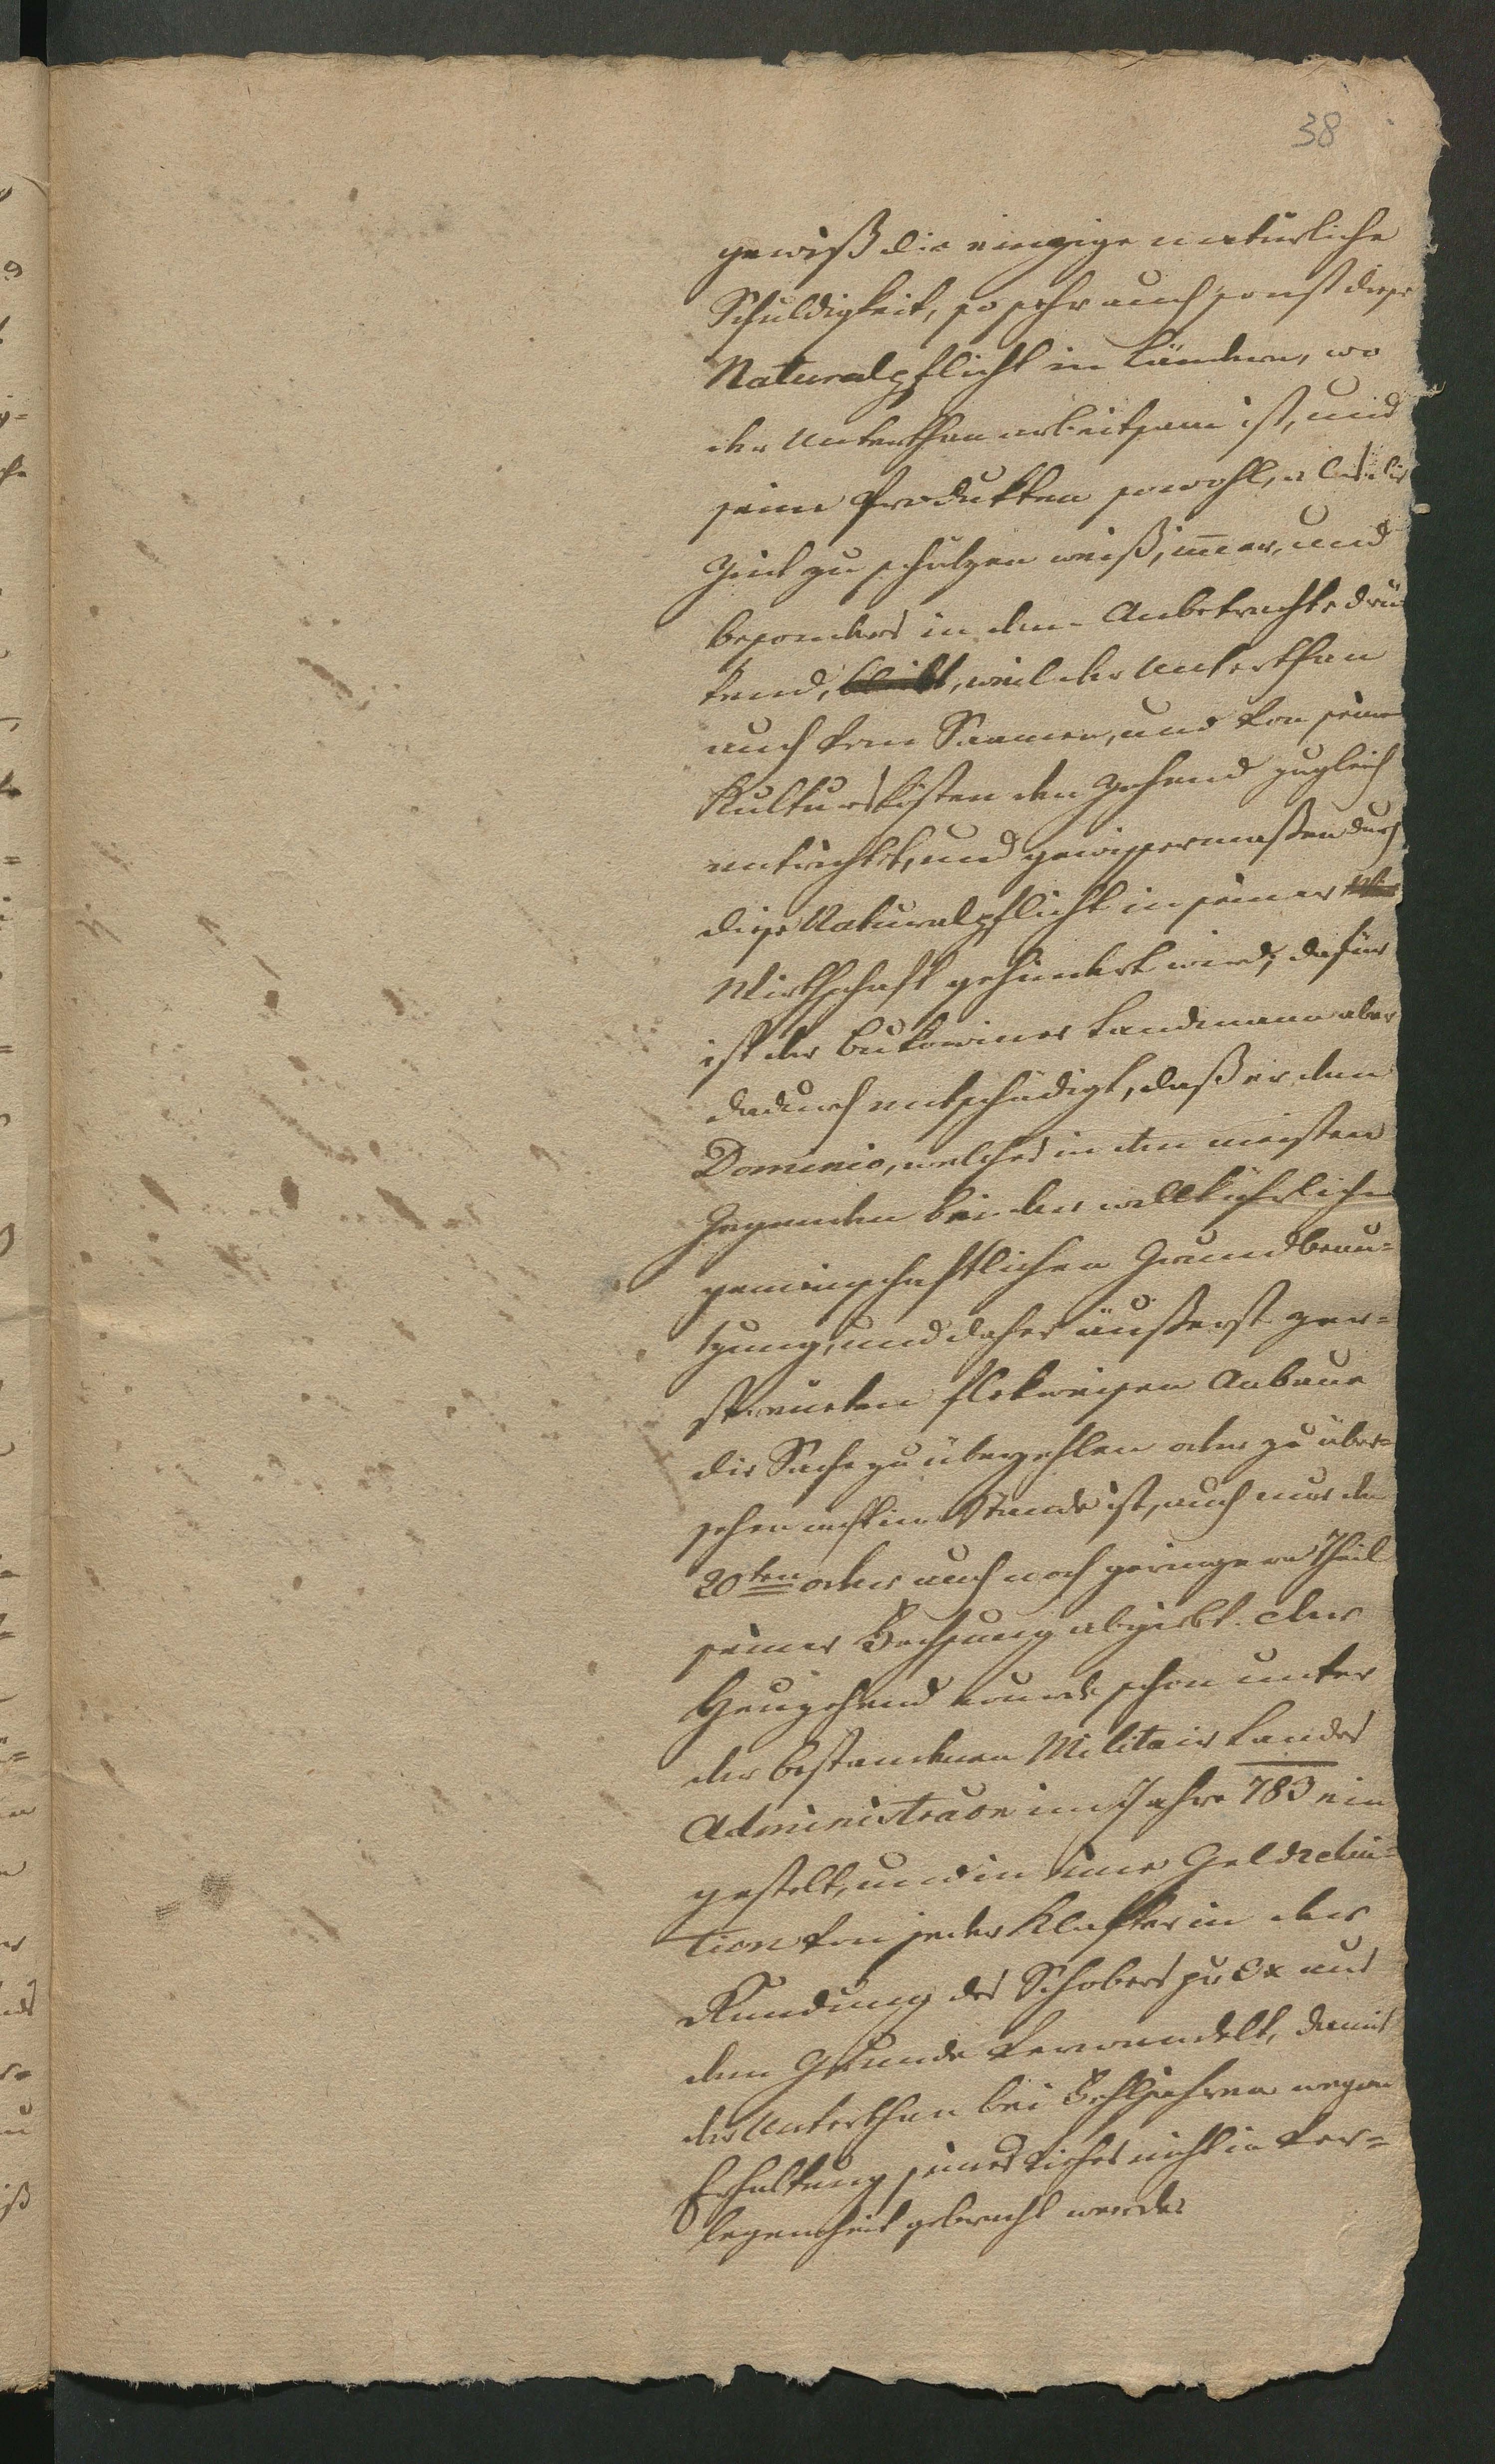 38
gewiß die einzige natürliche
Schuldigkeit, so sehr auch sonst diese
Naturalpflicht in Ländern, wo
der Unterthan arbeitsam ist, und
seine Produkten sowohl, als die
Zeit zu schätzen weiß, immer, und
besonders in dem Anbetrachte drü
kend, bleibt, weil der Unterthan
auch vom Saamen, und von seinen
Kulturskösten den Zehend zugleich
entrichtet, und gewissermassen durch
diese Naturalpflicht in seiner
Wirthschaft gehindert wird; dafür
ist der Bukowiner Landmann aber
dadurch entschädigt, daß er dem
Dominio, welches in den meisten
Gegenden bei der willkührlichen
gemeinschaftlichen Grundbenu-
tzung, und daher äußerst zer-
streuten flekweisen Anbaue
die Sache zu überzehlen oder zu über-
sehen nicht im Stande ist, auch nur den
20ten oder auch noch geringeren Theil
seiner Fechsung abgiebt. Der
Heuzehend wurde schon unter
der bestandenen Militair Landes
Administraon im Jahre 783 ein
gestelt, und in eine Geldrelui-
tion von jeder Klafter in der
Rundung des Schobers zu 3x aus
dem Grunde verwandelt, damit
der Unterthan bei Fehljahren wegen
Erhaltung seines Viehes nicht in Ver-
legenheit gebracht werde.